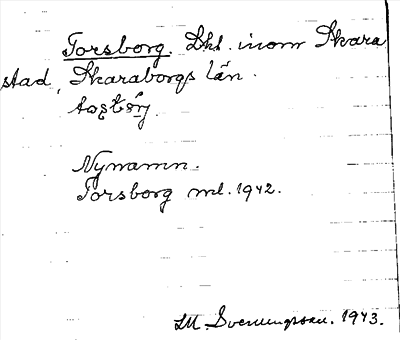 Torsborg. Lht. inom Skara
stad, Skaraborgs län.
Nynamn.
Torsborg ml. 1942.
LM Svenungsson. 1943.